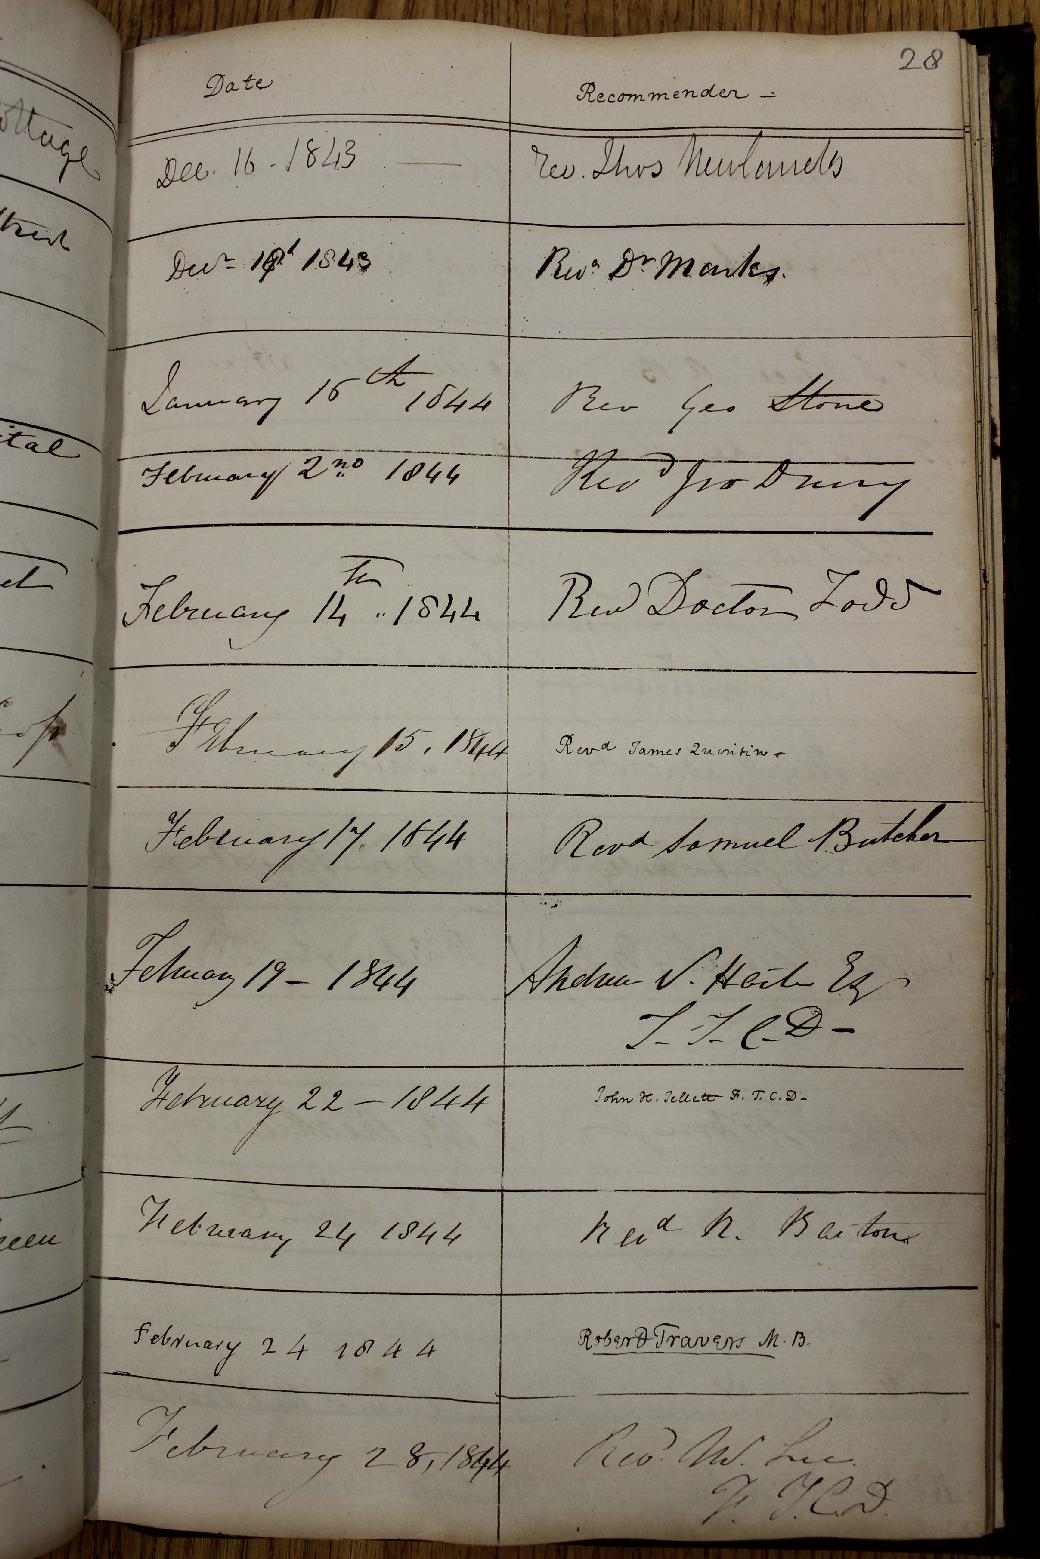 28
Date Recommender -
ottage
Dec. 16 - 1843 — Rev. Thos Newlands
treet
Decr 1843 Revd Dr Marks.
January 16th 1844 Rev Geo Stone
ital
February 2nd 1844 Revd Jno Drury
et
February 14th . 1844 Revd Doctor Todd
February 15, 1844 Revd James
February 17, 1844 Revd Samuel Butcher
February 19 - 1844 Andrew S. Hart Esq
F. T. C. D -
February 22 - 1844 John H. Jellett F. T. C. D -
reen
February 24 1844 Revd R. Barton
February 24 1844 Robert Travers M. B.
February 28, 1844 Revd W. Lee
F. T. C. D.